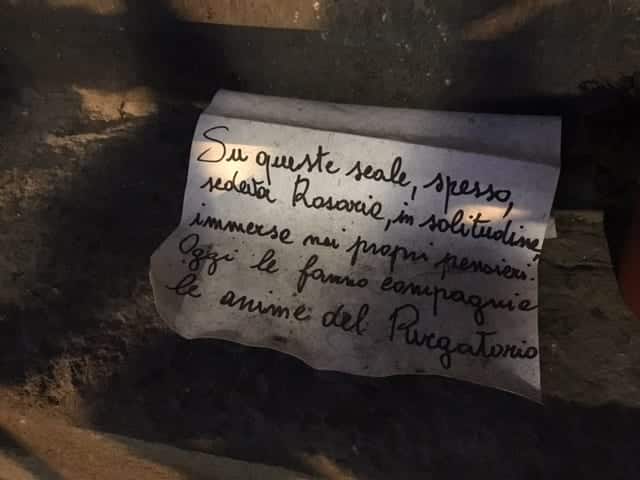 Su queste scale, spesso,
sedeva Rosaria, in solitudine,
immersa nei propri pensieri.
Oggi le fanno compagnia
le anime del Purgatorio